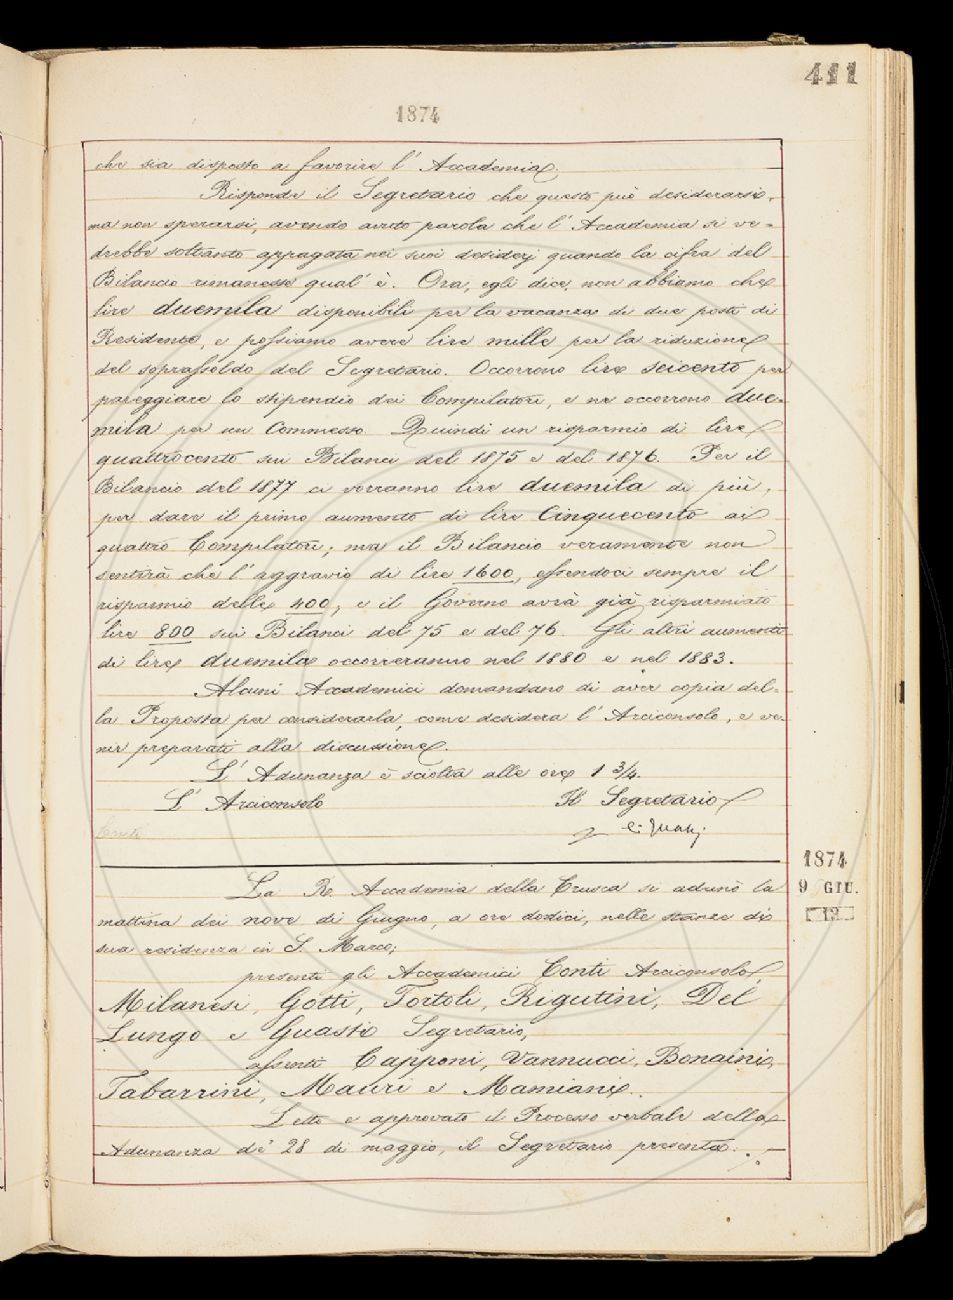 411
1874
che sia disposto a favorire l'Accademia.
Risponde il Segretario che questo può desiderarsi,
ma non sperarsi, avendo avuto parola che l'Accademia si ve-
drebbe soltanto appagata nei suoi desiderj quando la cifra del
Bilancio rimanesse qual'è. Ora, egli dice, non abbiamo che
lire duemila disponibili per la vacanza di due posti di
Residente, e possiamo avere lire mille per la riduzione
del soprassoldo del Segretario. Occorrono lire seicento per
pareggiare lo stipendio dei Compilatori, e ne occorrono due-
mila per un Commesso. Quindi un risparmio di lire
quattrocento sui Bilanci del 1875 e del 1876. Per il
Bilancio del 1877 ci vorranno lire duemila di più,
per dare il primo aumento di lire Cinquecento ai
quattro Compilatori; ma il Bilancio veramente non
sentirà che l'aggravio di lire 1600, essendoci sempre il
risparmio delle 400, e il Governo avrà già risparmiato
lire 800 sui Bilanci del 75 e del 76. Gli altri aumenti
di lire duemila occorreranno nel 1880 e nel 1883.
Alcuni Accademici domandano di aver copia del-
la Proposta per considerarla, come desidera l'Arciconsolo, e ve-
nir preparati alla discussione.
L'Adunanza è sciolta alle ore 1 3/4.
L'Arciconsolo Il Segretario
Conti
1874
9 GIU.
13
La R. Accademia della Crusca si adunò la
mattina dei nove di Giugno, a ore dodici, nelle stanze di
sua residenza in S. Marco;
presenti gli Accademici Conti Arciconsolo,
Milanesi, Gotti, Tortoli, Rigutini, Del
Lungo e Guasti Segretario,
assenti Capponi, Vannucci, Bonaini,
Tabarrini, Mauri e Mamiani.
Letto e approvato il Processo verbale della
Adunanza de' 28 di maggio, il Segretario presenta ./.